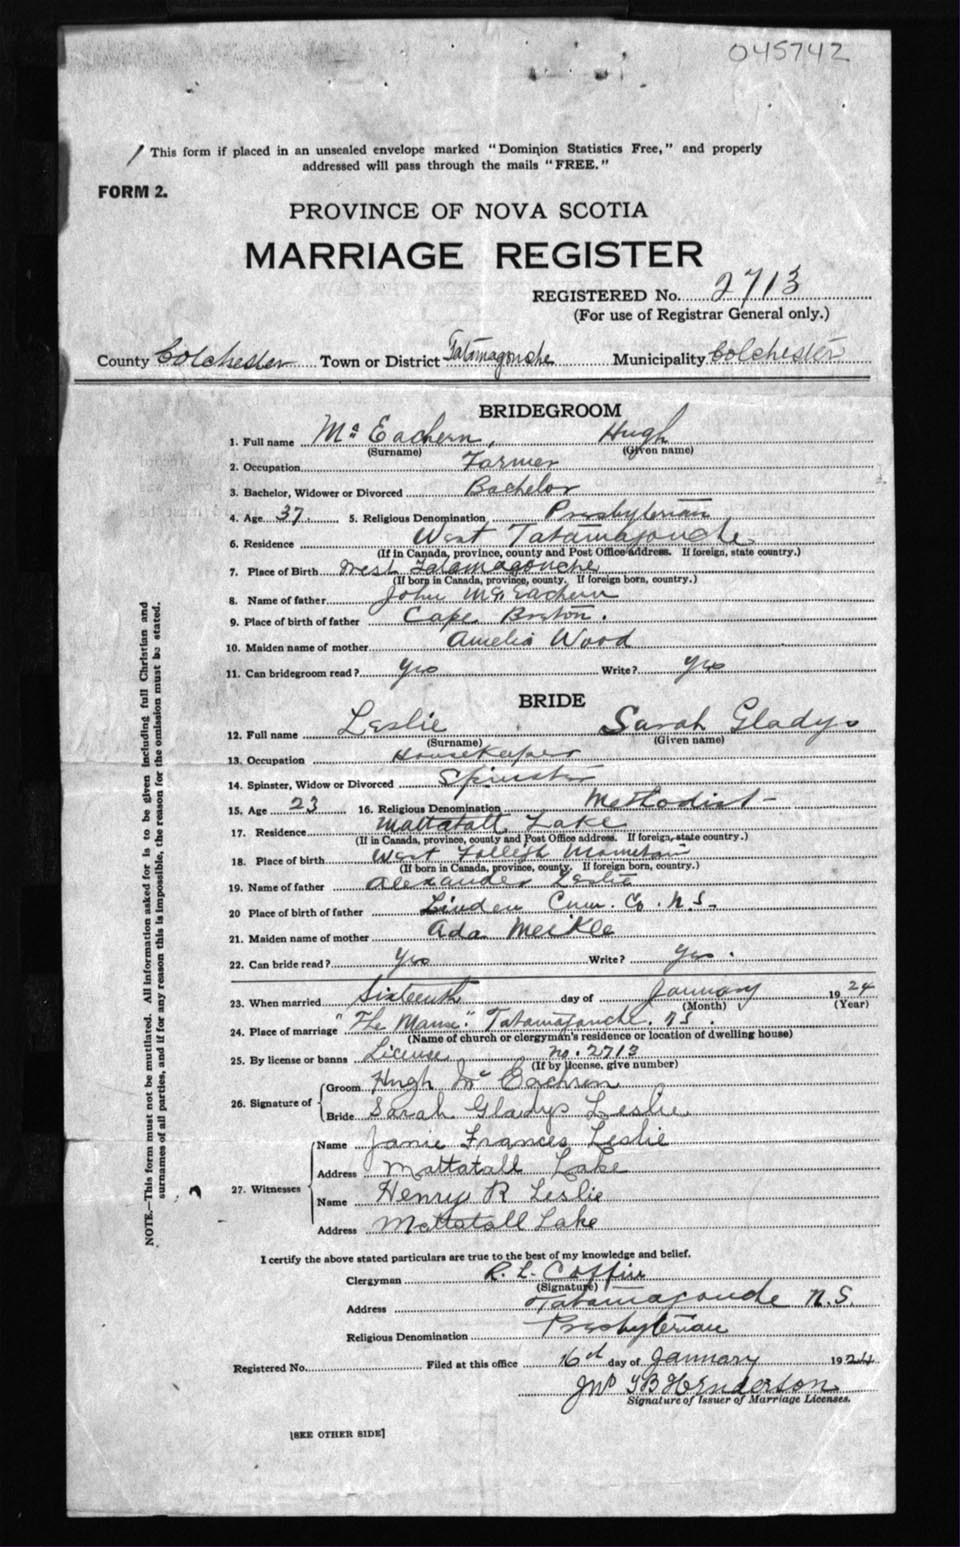 045742
This form if placed in an unsealed envelope marked "Dominion Statistics Free," and properly
addressed will pass through the mails "FREE."
FORM 2.
PROVINCE OF NOVA SCOTIA
MARRIAGE REGISTER
REGISTERED No. 2713
(For use of Registrar General only.)
County Colchester Town or District Tatamagouche Municipality Colchester
BRIDEGROOM
1. Full name McEachern, Hugh
(Surname) (Given name)
2. Occupation Farmer
3. Bachelor, Widower or Divorced Bachelor
4. Age 37 5. Religious Denomination Presbyterian
6. Residence West Tatamagouche
(If in Canada, province, county and Post Office address. If foreign, state country.)
7. Place of Birth West Tatamagouche
(If born in Canada, province, county. If foreign born, country.)
8. Name of father John McEachern
9. Place of birth of father Cape Breton.
10. Maiden name of mother Amelia Wood
11. Can bridegroom read? yes Write? yes
BRIDE
12. Full name Leslie Sarah Gladys
(Surname) (Given name)
13. Occupation Housekeeper
14. Spinster, Widow or Divorced Spinster
15. Age 23 16. Religious Denomination Methodist
17. Residence Mattatall Lake
(If in Canada, province, county and Post Office address. If foreign, state country.)
18. Place of birth West Mountain
(If born in Canada, province, county. If foreign born, country.)
19. Name of father Alexander Leslie
20 Place of birth of father Linden Cum. Co. N.S.
21. Maiden name of mother Ada Meikle
22. Can bride read? yes Write? yes.
23. When married Sixteenth day of January 1924
(Month) (Year)
24. Place of marriage "The Manse". Tatamagouche. N.S.
(Name of church or clergyman's residence or location of dwelling house)
25. By license or banns License no. 2713
(If by license, give number)
26. Signature of Groom Hugh McEachren
Bride Sarah Gladys Leslie
27. Witnesses Name Janie Frances Leslie
Address Mattatall Lake
Name Henry R Leslie
Address Mattatall Lake
I certify the above stated particulars are true to the best of my knowledge and belief.
Clergyman R. L. Coffin
(Signature)
Address Tatamagouche N.S.
Religious Denomination Presbyterian
Registered No. Filed at this office 16th day of January 1924
Henderson
Signature of Issuer of Marriage Licenses.
[SEE OTHER SIDE]
NOTE.—This form must not be mutilated. All information asked for is to be given including full Christian and
surnames of all parties, and if for any reason this is impossible, the reason for the omission must be stated.